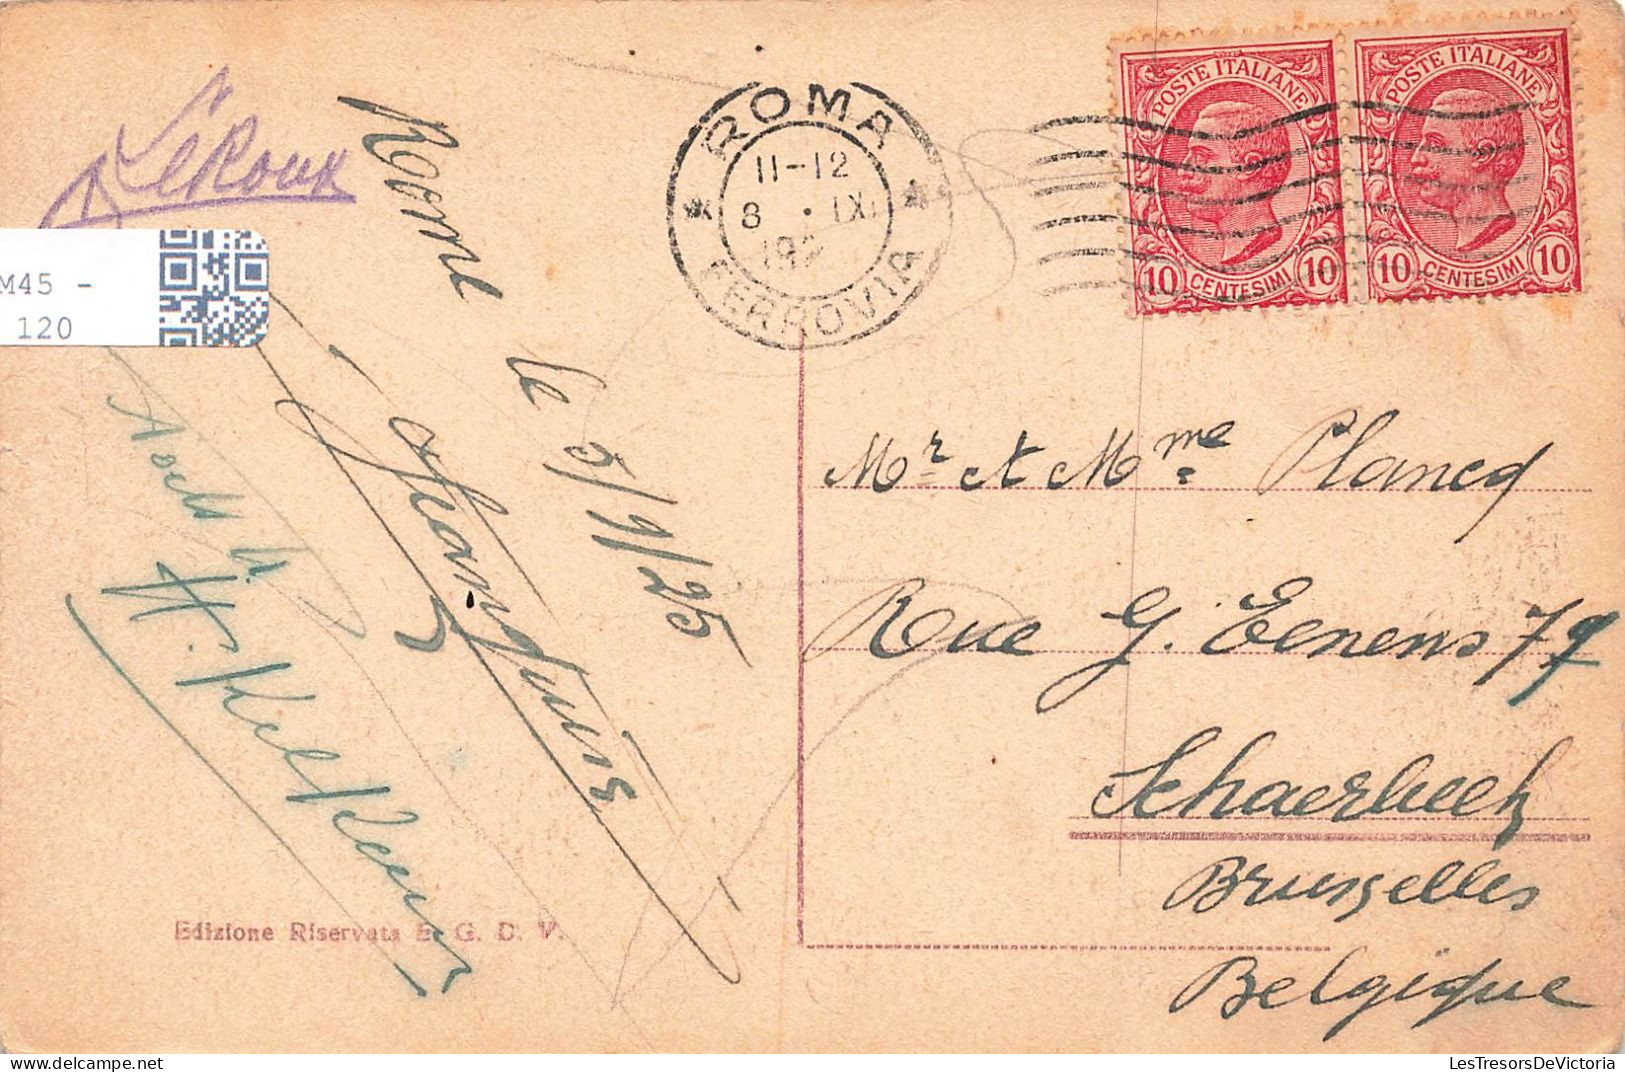 LeRoux
M45 -
120
Rome le 5/9/25
H.
Edizione Riservata E. G. D. V.
ROMA
11-12
8 . IX
192
FERROVIA
POSTE ITALIANE
10 CENTESIMI 10
POSTE ITALIANE
10 CENTESIMI 10
Mr et Mme Plancq
Rue G. Eenens 79
Schaerbeek
Bruxelles
Belgique
LesTresorsDeVictoria